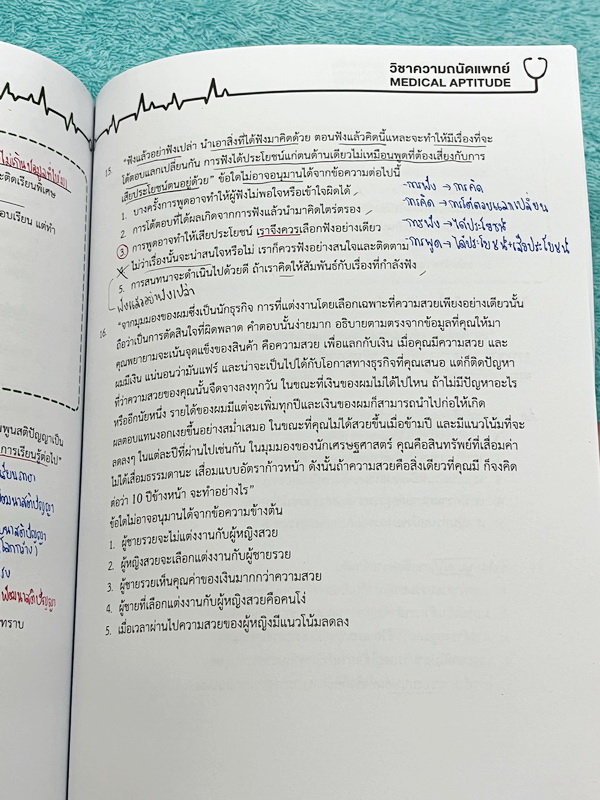 วิชาความถนัดแพทย์
MEDICAL APTITUDE
15. "ฟังแล้วอย่าฟังเปล่า นำเอาสิ่งที่ได้ฟังมาคิดด้วย ตอนฟังแล้วคิดนี้แหละจะทำให้มีเรื่องที่จะ
โต้ตอบแลกเปลี่ยนกัน การฟังได้ประโยชน์แก่ตนด้านเดียวไม่เหมือนพูดที่ต้องเสี่ยงกับการ
เสียประโยชน์ตนอยู่ด้วย" ข้อใดไม่อาจอนุมานได้จากข้อความต่อไปนี้
1. บางครั้งการพูดอาจทำให้ผู้ฟังไม่พอใจหรือเข้าใจผิดได้
2. การโต้ตอบที่ได้ผลเกิดจากการฟังแล้วนำมาคิดไตร่ตรอง
3 การพูดอาจทำให้เสียประโยชน์ เราจึงควรเลือกฟังอย่างเดียว
4. ไม่ว่าเรื่องนั้นจะน่าสนใจหรือไม่ เราก็ควรฟังอย่างสนใจและติดตาม
5. การสนทนาจะดำเนินไปด้วยดี ถ้าเราคิดให้สัมพันธ์กับเรื่องที่กำลังฟัง
ฟังแล้วอย่าฟังเปล่า
-การฟัง → การคิด
-การคิด → การโต้ตอบแลกเปลี่ยน
-การฟัง → ได้ประโยชน์
-การพูด → ได้ประโยชน์+เสียประโยชน์
16. "จากมุมมองของผมซึ่งเป็นนักธุรกิจ การที่แต่งงานโดยเลือกเฉพาะที่ความสวยเพียงอย่างเดียวนั้น
ถือว่าเป็นการตัดสินใจที่ผิดพลาด คำตอบนั้นง่ายมาก อธิบายตามตรงจากข้อมูลที่คุณให้มา
คุณพยายามจะเน้นจุดแข็งของสินค้า คือความสวย เพื่อแลกกับเงิน เมื่อคุณมีความสวย และ
ผมมีเงิน แน่นอนว่ามันแฟร์ และน่าจะเป็นไปได้กับโอกาสทางธุรกิจที่คุณเสนอ แต่ก็ติดปัญหา
ที่ว่าความสวยของคุณนั้นจืดจางลงทุกวัน ในขณะที่เงินของผมไม่ได้ไปไหน ถ้าไม่มีปัญหาอะไร
หรืออีกนัยหนึ่ง รายได้ของผมมีแต่จะเพิ่มทุกปีและเงินของผมก็สามารถนำไปก่อให้เกิด
ผลตอบแทนงอกเงยขึ้นอย่างสม่ำเสมอ ในขณะที่คุณไม่ได้สวยขึ้นเมื่อข้ามปี และมีแนวโน้มที่จะ
ลดลงๆ ในแต่ละปีที่ผ่านไปเช่นกัน ในมุมมองของนักเศรษฐศาสตร์ คุณคือสินทรัพย์ที่เสื่อมค่า
ไม่ได้เสื่อมธรรมดานะ เสื่อมแบบอัตราก้าวหน้า ดังนั้นถ้าความสวยคือสิ่งเดียวที่คุณมี ก็จงคิด
ต่อว่า 10 ปีข้างหน้า จะทำอย่างไร"
ข้อใดไม่อาจอนุมานได้จากข้อความข้างต้น
1. ผู้ชายรวยจะไม่แต่งงานกับผู้หญิงสวย
2. ผู้หญิงสวยจะเลือกแต่งงานกับผู้ชายรวย
3. ผู้ชายรวยเห็นคุณค่าของเงินมากกว่าความสวย
4. ผู้ชายที่เลือกแต่งงานกับผู้หญิงสวยคือคนโง่
5. เมื่อเวลาผ่านไปความสวยของผู้หญิงมีแนวโน้มลดลง